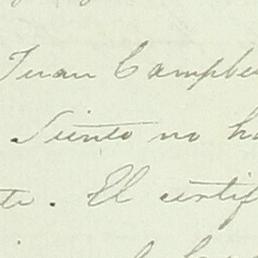 Juan Campbe
Siento no ha
te. El certif